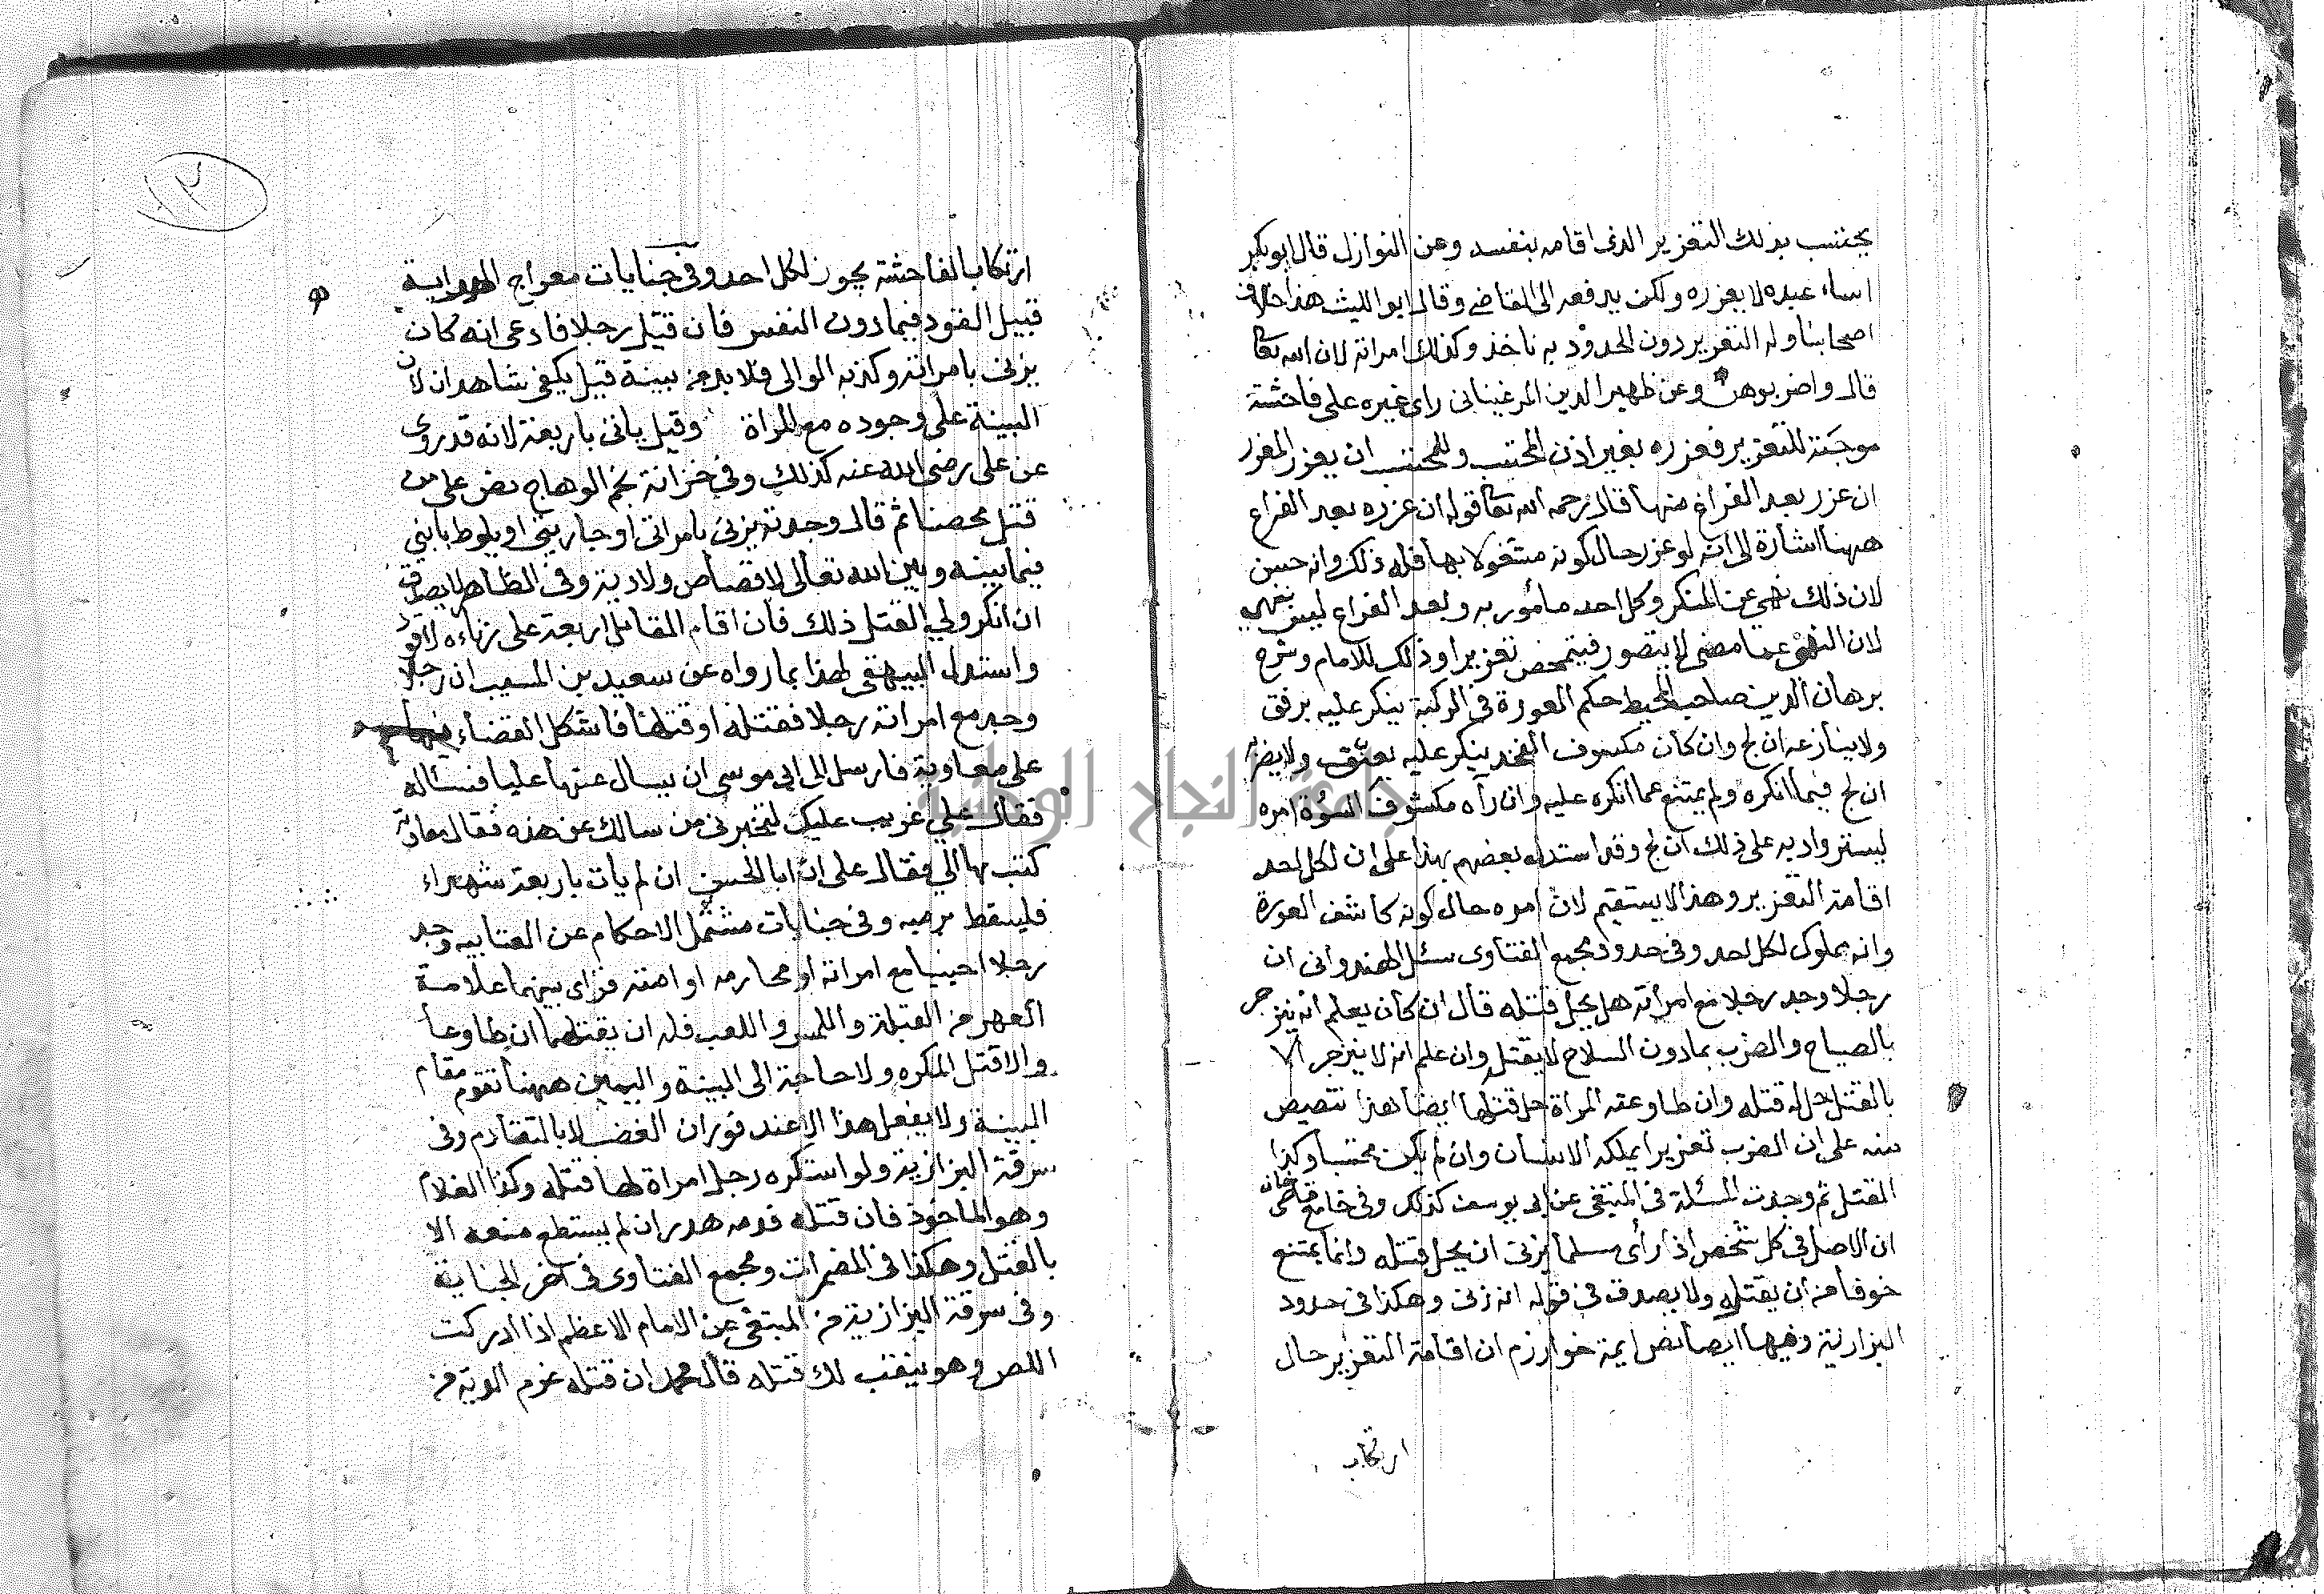 يحتسب بذلك التعزير الذى اقامه بنفسه وعن النوازل قال ابو بكر
اساء عبده لا يعزره ولكن يرفعه الى القاضى وقال ابو الليث هذا خلاف
اصحابنا وله التعزير دون الحدود به ناخذ وكذلك امراته لان الله تعا
قال واضربوهن وعن ظهير الدين المرغينانى راى غيره على فاحشة
موجبة للتعزير فعزره بغير اذن المحتسب وللمحتسب ان يعزر المعزر
ان عزر بعد الفراغ منها قال رحمه الله تعا قوله ان عزره بعد الفراغ
ههنا اشارة الى انه لو عزر حال كونه مشغولا بها فله ذلك وانه حسن
لان ذلك نهى عن المنكر وكل احد مأمور به وبعد الفراغ ليس بنهى
لان النهى عما مضى لا يتصور فيتمحض تعزيرا وذلك للامام وشرح
برهان الدين صاحب المحيط حكم العورة فى الركبة ينكر عليه برفق
ولا ينازعه ان لج وان كان مكسوف الفخذ ينكر عليه بعنف ولا يضربه
ان لج فيما انكره ولم يمتنع عما انكره عليه وان رآه مكشوف السؤة امره
ليستر وادبه على ذلك ان لج وقد استدل بعضهم بهذا على ان لكل احد
اقامة التعزير وهذا لا يستقيم لان امره حال كونه كاشف العورة
وانه مملوك لكل احد وفى حدود مجمع الفتاوى سئل الهندوانى ان
رجلا وجد رجلا مع امراته هل يحل قتله قال ان كان يعلم انه ينزجر
بالصياح والضرب بمادون السلاح لا يقتله وان علم انه لا ينزجر الا
بالقتل حل له قتله وان طاوعته المراة حل قتلها ايضا هذا تنصيص
منه على ان الضرب تعزيرا يملكه الانسان وان لم يكن محتسبا وكذا
القتل ثم وجدت المسئلة فى المنتقى عن ابى يوسف كذلك وفى جامع قاضى خان
ان الاصل فى كل شخص اذا رأى مسلما يزنى ان يحل قتله وانما يمتنع
خوفا من ان يقتله ولا يصدق فى قوله انه زنى وهكذا فى حدود
البزازية وفيها ايضا نص ايمة خوارزم ان اقامة التعزير حال
ارتكاب
ارتكاب الفاحشة يجوز لكل احد وفى جنايات معراج الهداية
قبيل القود فيما دون النفس فان قتل رجلا فادعى انه كان
يزنى بامراته وكذبه الوالى فلا بد من بينة قيل يكفى شاهدان لان
البينة على وجوده مع المراة وقيل يأتى باربعة لانه قد روى
عن على رضى الله عنه كذلك وفى خزانة نجم الوهاج نص على من
قتل محصنا ثم قال وجدته يزنى بامراتى او جاريتى او يلوط بابنى
فيما بينه وبين الله تعالى لا قصاص ولا دية وفى الظاهر لا يصدق
ان انكر ولى القتل ذلك فان اقام القاتل اربعة على زناه لا قود
واستدل البيهقى لهذا بما رواه عن سعيد بن المسيب ان رجلا
وجد مع امراته رجلا فقتله او قتلها فاشكل القضاء
على معاوية فارسل الى ابى موسى ان يسال عنها عليا فسئاله
فقال على عزيب عليك لتخبرنى من سالك عن هذه فقال معاوية
كتب بها الى فقال على انا ابا الحسن ان لم يأت باربعة شهداء
فليسقط برميه وفى جنايات مشتمل الاحكام عن العتابيه وجد
رجلا اجنبيا مع امراته او محارمه او امته فراى بينهما علامة
العهر من القبلة واللمس واللعب فله ان يقتلهما ان طاوعا
والا قتل المكره ولا حاجة الى البينة واليمين ههنا تقوم مقام
البينة ولا يفعل هذا الا عند فوران الغضب لا بالتقادم وفى
سرقة البزازية ولو استكره رجل امراة لها قتله وكذا الغلام
وهو المأخوذ فان قتله فدمه هدر ان لم يستطع منعه الا
بالقتل وهكذا فى المضمرات ومجمع الفتاوى فى آخر الجناية
وفى سرقة البزازية من المنتقى عن الامام الاعظم اذا ادركت
اللص وهو ينقب لك قتله قال محمد ان قتله غرم الدية من
جامعة النجاح الوطنية